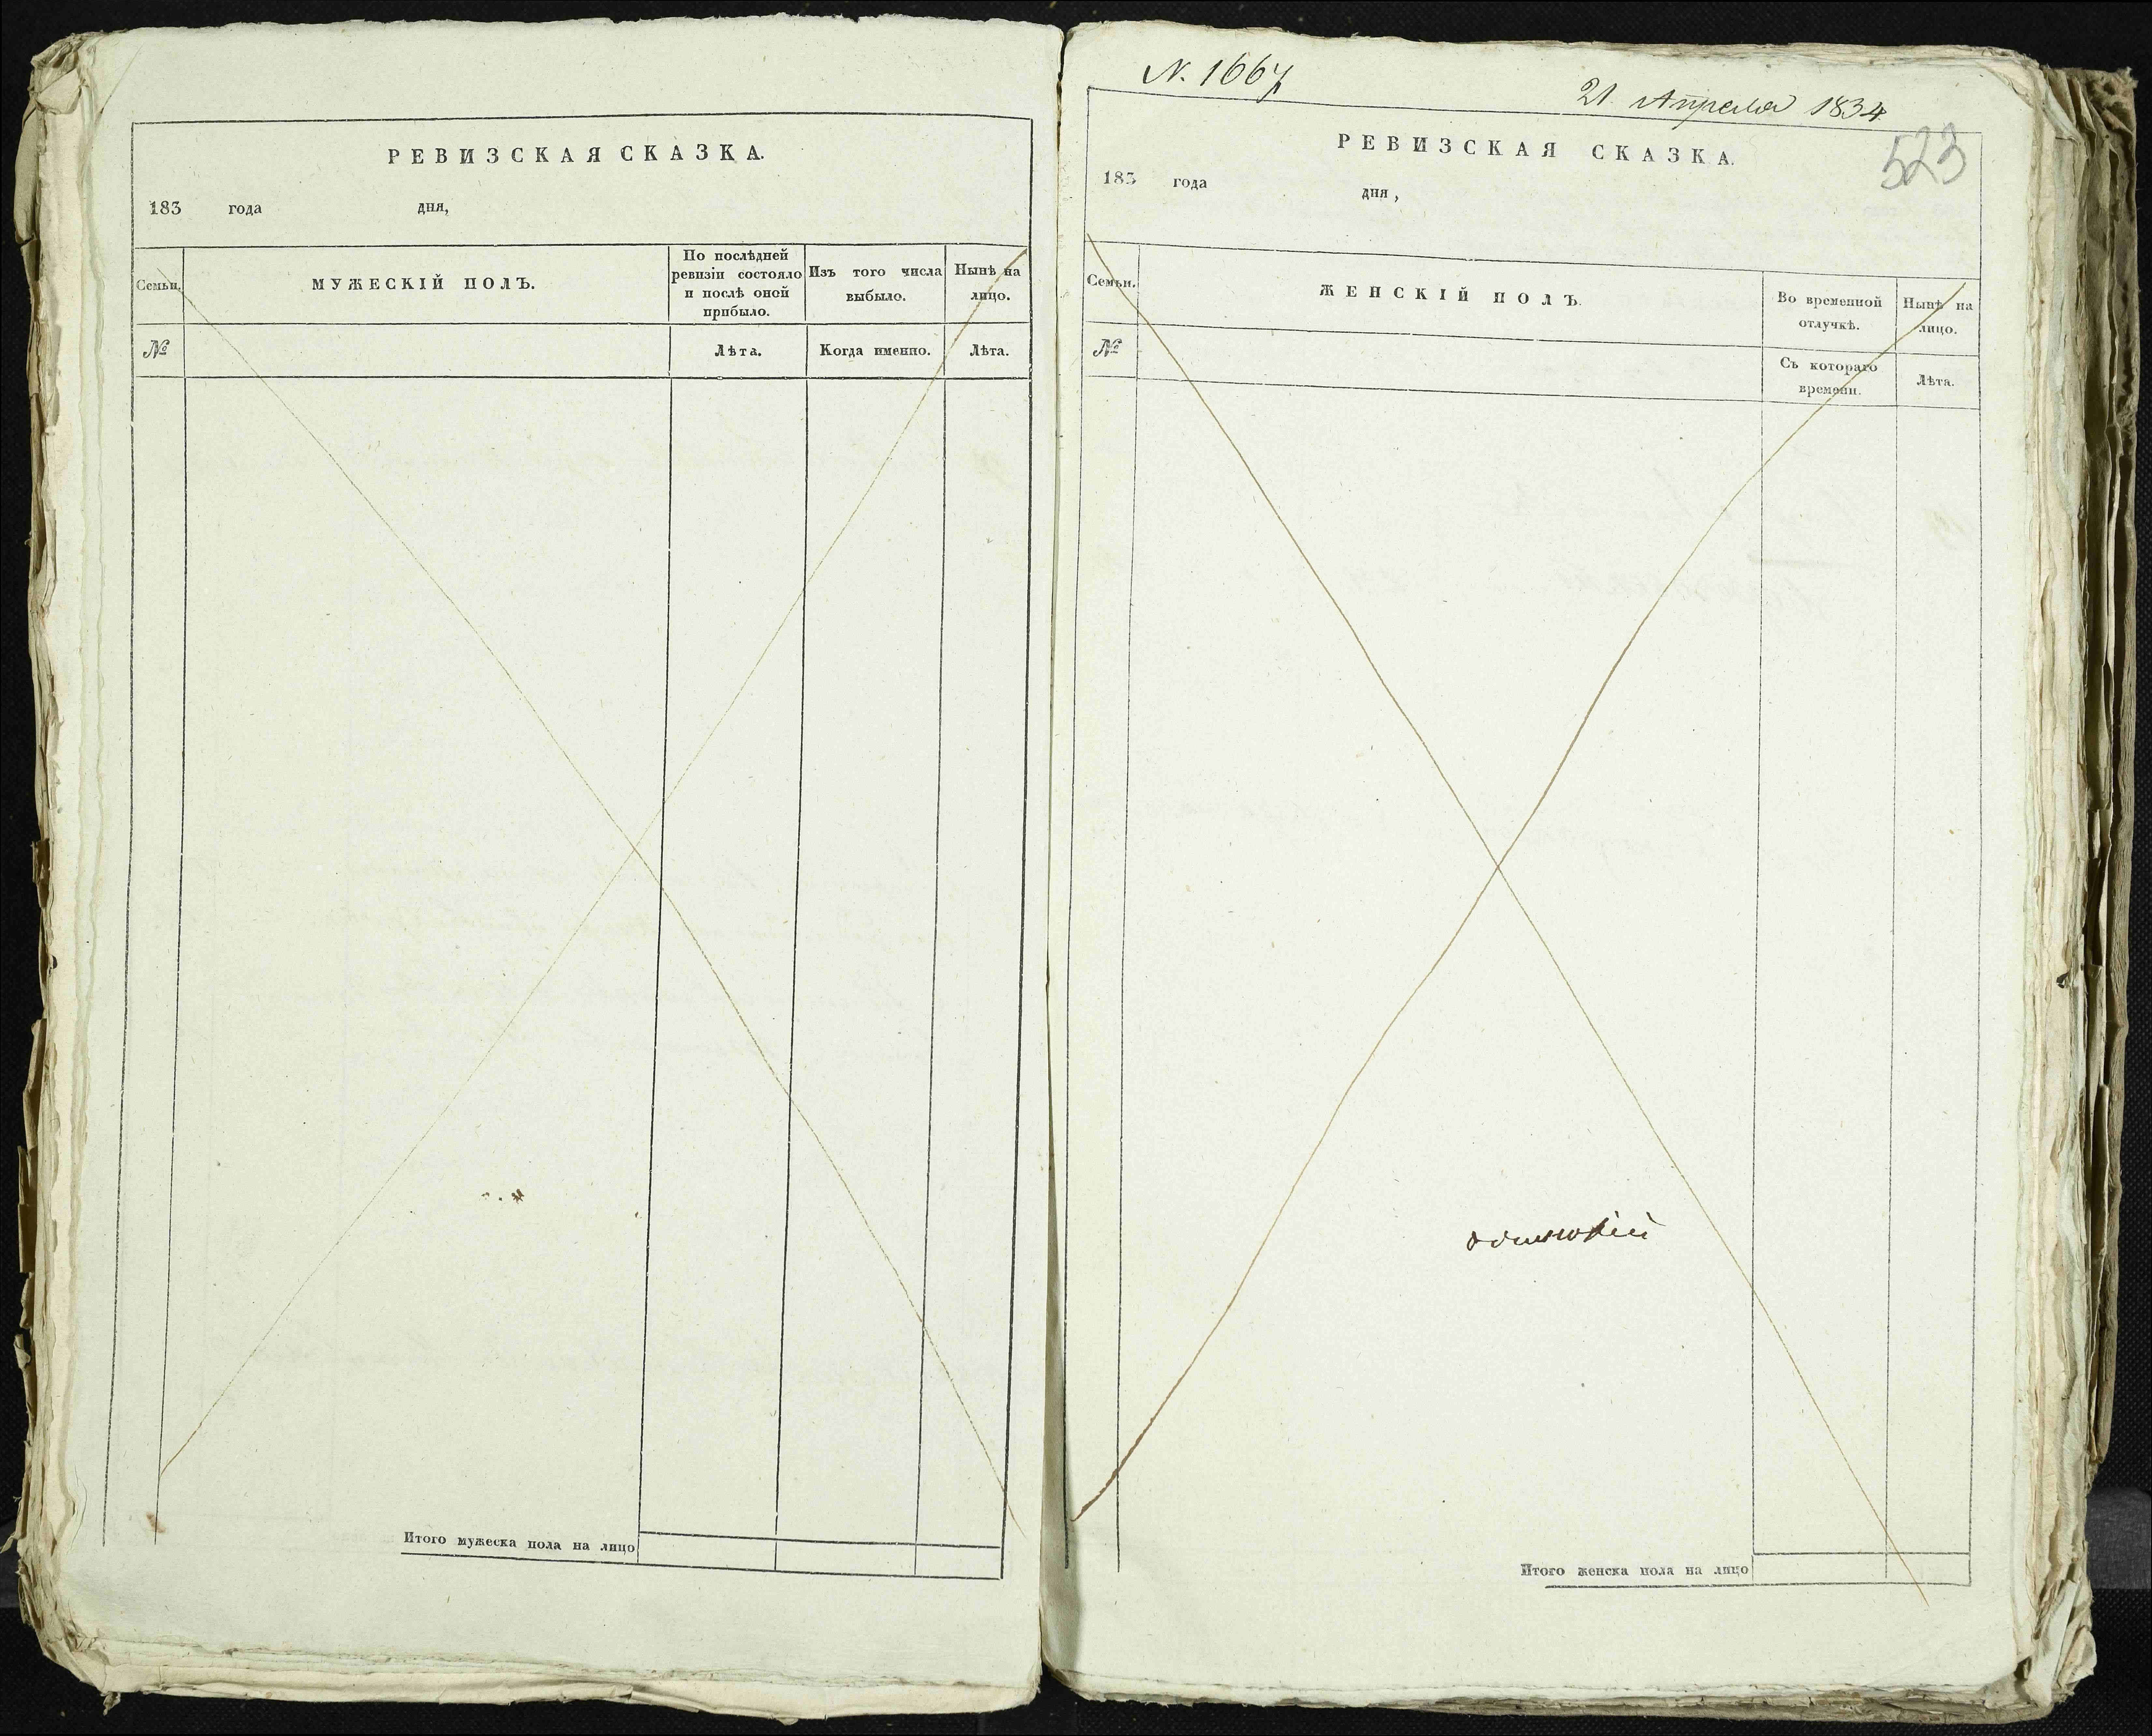 РЕВИЗСКАЯ СКАЗКА.
183 года дня,
Семьи.
МУЖЕСКІЙ ПОЛЪ.
По послѣдней
ревизіи состояло
и послѣ оной
прибыло.
Изъ того числа
выбыло.
Нынѣ на
лицо.
№
Лѣта.
Когда именно.
Лѣта.
Итого мужеска пола на лицо
N. 1667
21 Апреля 1834
523
РЕВИЗСКАЯ СКАЗКА.
183 года дня,
Семьи.
ЖЕНСКІЙ ПОЛЪ.
Во временной
отлучкѣ.
Нынѣ на
лицо.
№
Съ котораго
времени.
Лѣта.
Итого женска пола на лицо